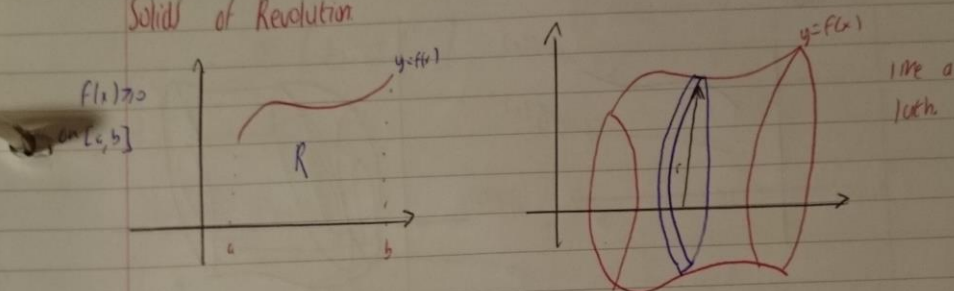 Solids of Revolution
y=f(x)
f(x)≥0
on [a,b]
R
a
b
y=f(x)
r
like a
lath